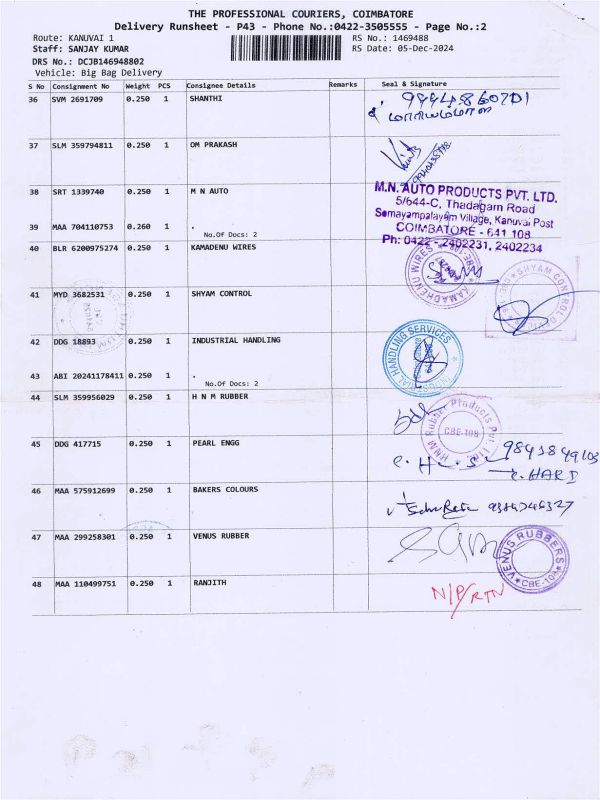 THE PROFESSIONAL COURIERS, COIMBATORE
Delivery Runsheet - P43 - Phone No.:0422-3505555 - Page No.:2
Route: KANUVAI 1
RS No.: 1469488
Staff: SANJAY KUMAR
RS Date: 05-Dec-2024
DRS No.: DCJB146948802
Vehicle: Big Bag Delivery
S No Consignment No Weight PCS Consignee Details Remarks Seal & Signature
36 SVM 2691709 0.250 1 SHANTHI
37 SLM 359794811 0.250 1 OM PRAKASH
38 SRT 1339740 0.250 1 M N AUTO
M.N. AUTO PRODUCTS PVT. LTD.
5/644-C, Thadagam Road
Semayampalayam Village, Kanuvai Post
COIMBATORE - 641 108
Ph: 0422 - 2402231, 2402234
39 MAA 704110753 0.260 1 .
No.Of Docs: 2
40 BLR 6200975274 0.250 1 KAMADENU WIRES
KAMADHENU WIRES
41 MYD 3682531 0.250 1 SHYAM CONTROL
SHYAM CONTROL
42 DDG 18893 0.250 1 INDUSTRIAL HANDLING
INDUSTRIAL HANDLING SERVICES
43 ABI 20241178411 0.250 1 .
No.Of Docs: 2
44 SLM 359956029 0.250 1 H N M RUBBER
HNM Rubber Products Pvt. Ltd.
CBE-108
45 DDG 417715 0.250 1 PEARL ENGG
46 MAA 575912699 0.250 1 BAKERS COLOURS
47 MAA 299258301 0.250 1 VENUS RUBBER
VENUS RUBBERS
CBE-108
48 MAA 110499751 0.250 1 RANJITH
N/P/RTN